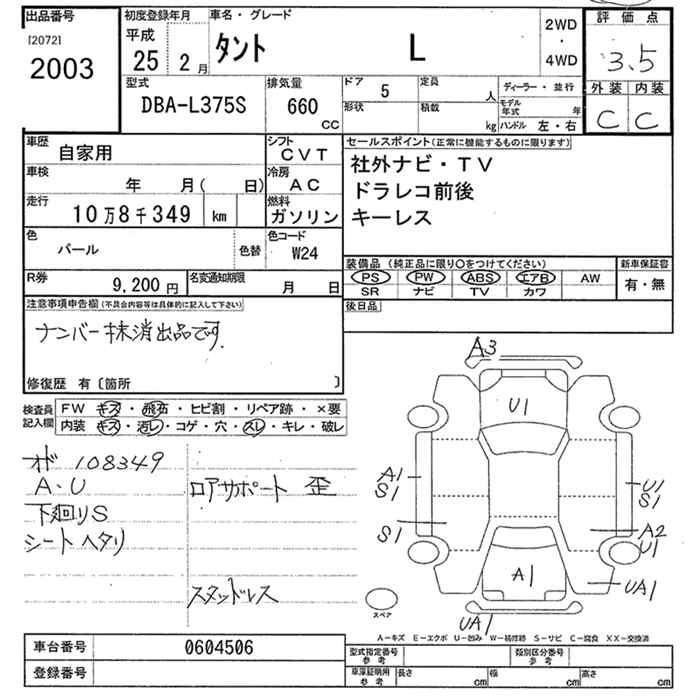 出品番号
[2072]
2003
初度登録年月
平成
25 2 月
車名・グレード
タント L
2WD
・
4WD
評価点
3.5
外装 内装
C C
型式
DBA-L375S
排気量
660
CC
ドア
5
定員
人
形状
積載
kg
ディーラー・並行
モデル年式
年
ハンドル 左・右
車歴
自家用
シフト
CVT
車検
年 月( 日)
冷房
AC
走行
10万8千349 km
燃料
ガソリン
色
パール
色替
色コード
W24
R券
9,200 円
名変通知期限
月 日
セールスポイント(正常に機能するものに限ります)
社外ナビ・TV
ドラレコ前後
キーレス
装備品 (純正品に限り○をつけてください)
PS PW ABS エアB AW
SR ナビ TV カワ
新車保証書
有・無
後日品
注意事項申告欄(不具合内容等は具体的に記入して下さい)
ナンバー抹消出品です.
修復歴 有〔箇所 〕
検査員
記入欄
FW キズ・飛石・ヒビ割・リペア跡・×要
内装 キズ・汚レ・コゲ・穴・スレ・キレ・破レ
オド 108349
A・U
下廻りS
シートヘタリ
ロアサポート 歪
スタッドレス
A3
U1
A1
S1
S1
U1
S1
A2
U1
A1
UA1
UA1
スペア
A-キズ E-エクボ U-凹み W-板修跡 S-サビ C-腐食 XX-交換済
車台番号
0604506
登録番号
型式指定番号
参考
類別区分番号
参考
車庫証明用
参考
長さ
cm
幅
cm
高さ
cm